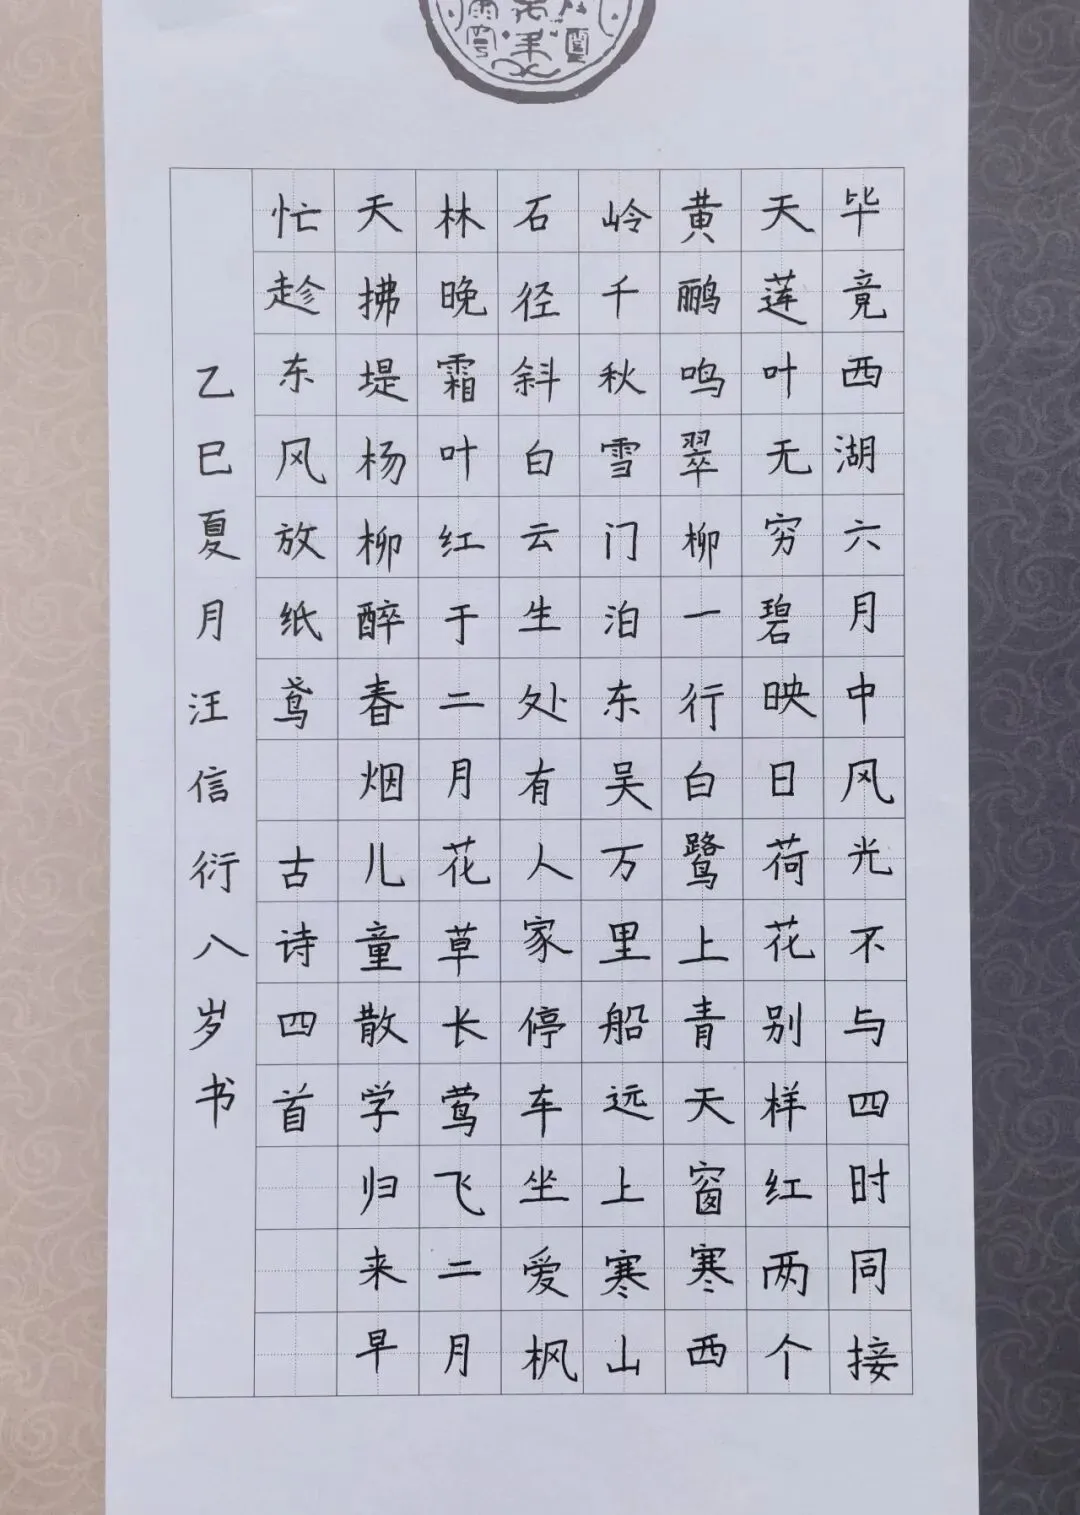 毕竟西湖六月中风光不与四时同接
天莲叶无穷碧映日荷花别样红两个
黄鹂鸣翠柳一行白鹭上青天窗寒西
岭千秋雪门泊东吴万里船远上寒山
石径斜白云生处有人家停车坐爱枫
林晚霜叶红于二月花草长莺飞二月
天拂堤杨柳醉春烟儿童散学归来早
忙趁东风放纸鸢 古诗四首
乙巳夏月汪信衍八岁书